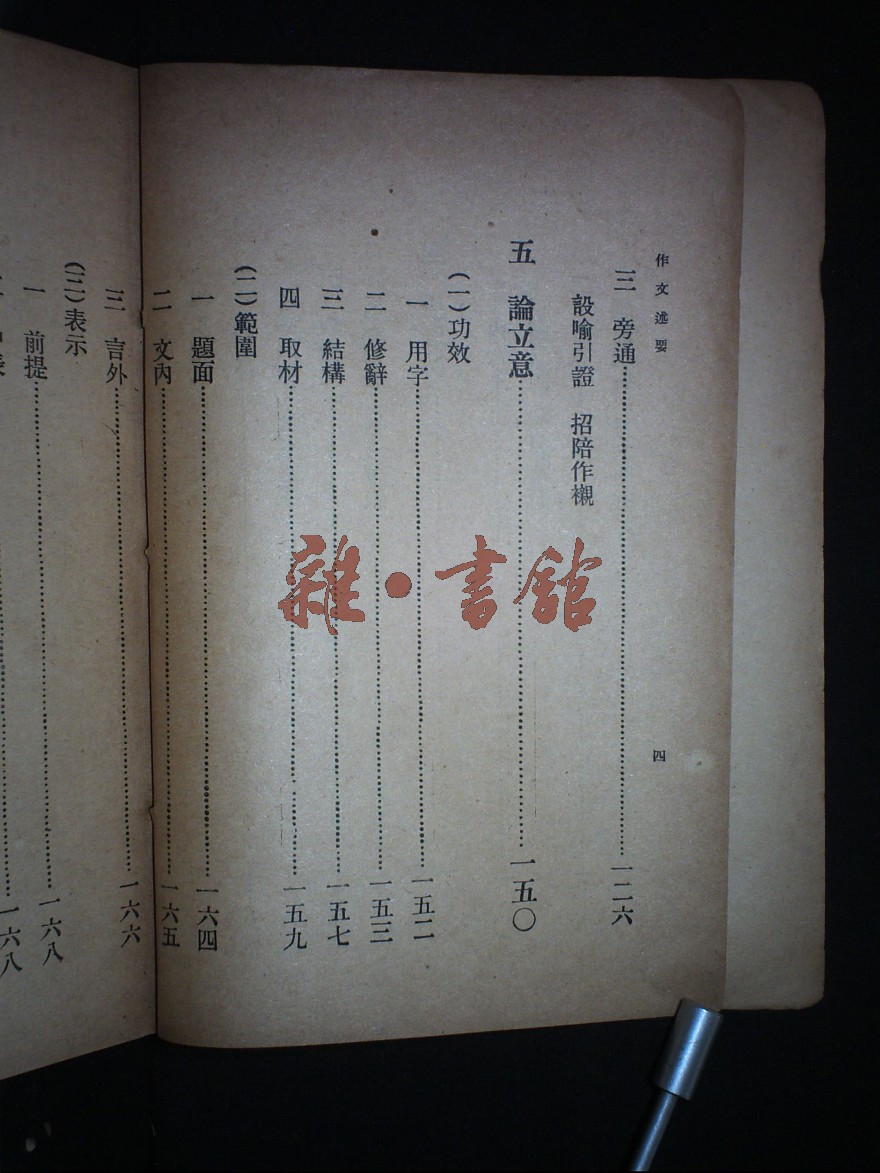 作文述要 四
三 旁通……一二六
設喻引證 招陪作襯
五 論立意……一五〇
(一)功效
一 用字……一五二
二 修辭……一五三
三 結構……一五七
四 取材……一五九
(二)範圍
一 題面……一六四
二 文內……一六五
三 言外……一六六
(三)表示
一 前提……一六八
一六八
雜·書館